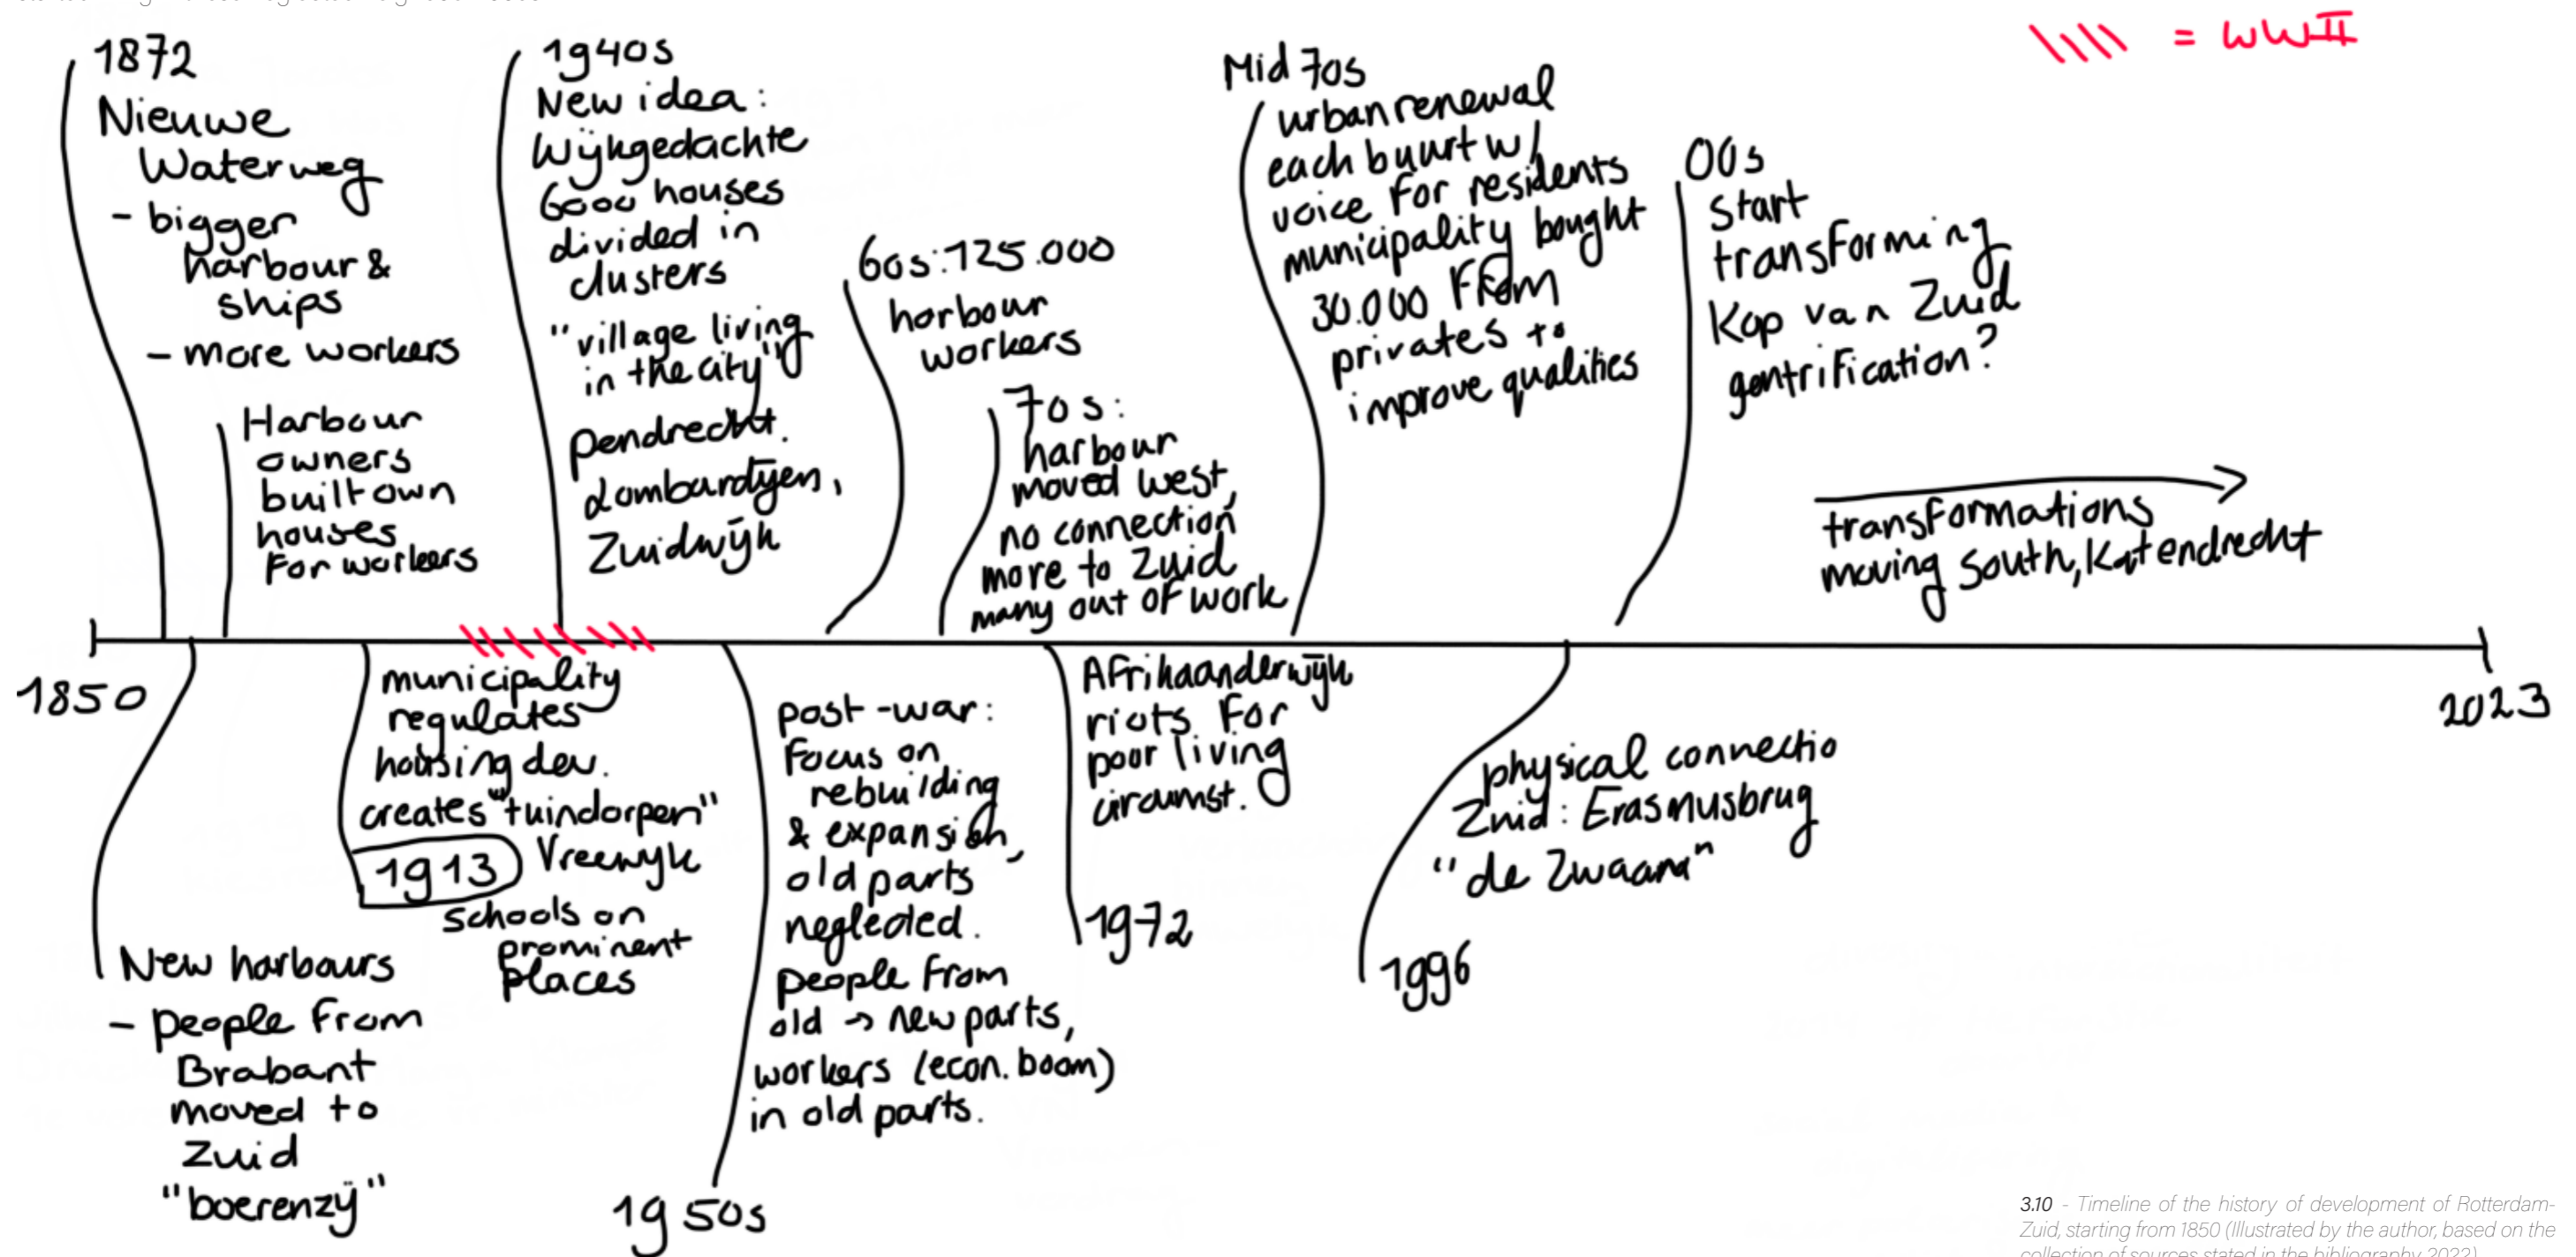 1872
Nieuwe
Waterweg
- bigger
harbour &
ships
- more workers
Harbour
owners
built own
houses
for workers
1940s
New idea:
Wijkgedachte
6000 houses
divided in
clusters
"village living
in the city"
Pendrecht.
Lombardijen,
Zuidwijk
60s: 125.000
harbour
workers
70s:
harbour
moved west,
no connection
more to Zuid
many out of work
Mid 70s
urban renewal
each buurt w/
voice for residents
municipality bought
30.000 from
privates to
improve qualities
00s
start
transforming
Kop van Zuid
gentrification?
transformations
moving south, Katendrecht
//// = WWII
1850
2023
New harbours
- people from
Brabant
moved to
Zuid
"boerenzij"
municipality
regulates
housing dev.
creates "tuindorpen"
1913 Vreewijk
schools on
prominent
places
post-war:
focus on
rebuilding
& expansion,
old parts
neglected.
people from
old → new parts,
workers (econ. boom)
in old parts.
1950s
Afrikaanderwijk
riots for
poor living
circumst.
1972
physical connectio
Zuid: Erasmusbrug
"de Zwaan"
1996
3.10 - Timeline of the history of development of Rotterdam-
Zuid, starting from 1850 (Illustrated by the author, based on the
collection of sources stated in the bibliography 2022)